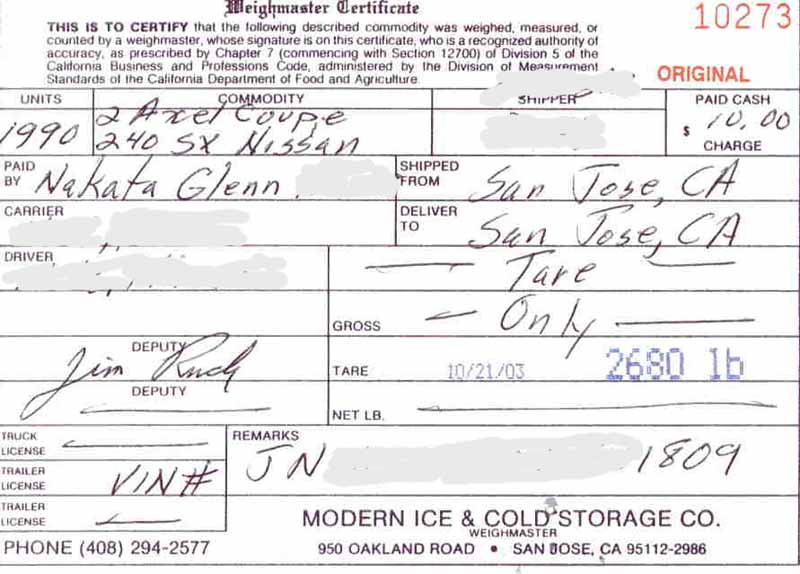 Weighmaster Certificate
10273
THIS IS TO CERTIFY that the following described commodity was weighed, measured, or
counted by a weighmaster, whose signature is on this certificate, who is a recognized authority of
accuracy, as prescribed by Chapter 7 (commencing with Section 12700) of Division 5 of the
California Business and Professions Code, administered by the Division of Measurement
Standards of the California Department of Food and Agriculture.
ORIGINAL
UNITS COMMODITY SHIPPER PAID CASH
1990 2 Axel Coupe $ 10.00
240 SX Nissan CHARGE
PAID BY Nakata Glenn SHIPPED FROM San Jose, CA
CARRIER DELIVER TO San Jose, CA
DRIVER Tare
GROSS Only
DEPUTY Jim TARE 10/21/03 2680 lb
DEPUTY NET LB.
TRUCK LICENSE REMARKS
JN 1809
TRAILER LICENSE VIN#
TRAILER LICENSE
MODERN ICE & COLD STORAGE CO.
WEIGHMASTER
PHONE (408) 294-2577 950 OAKLAND ROAD • SAN JOSE, CA 95112-2986